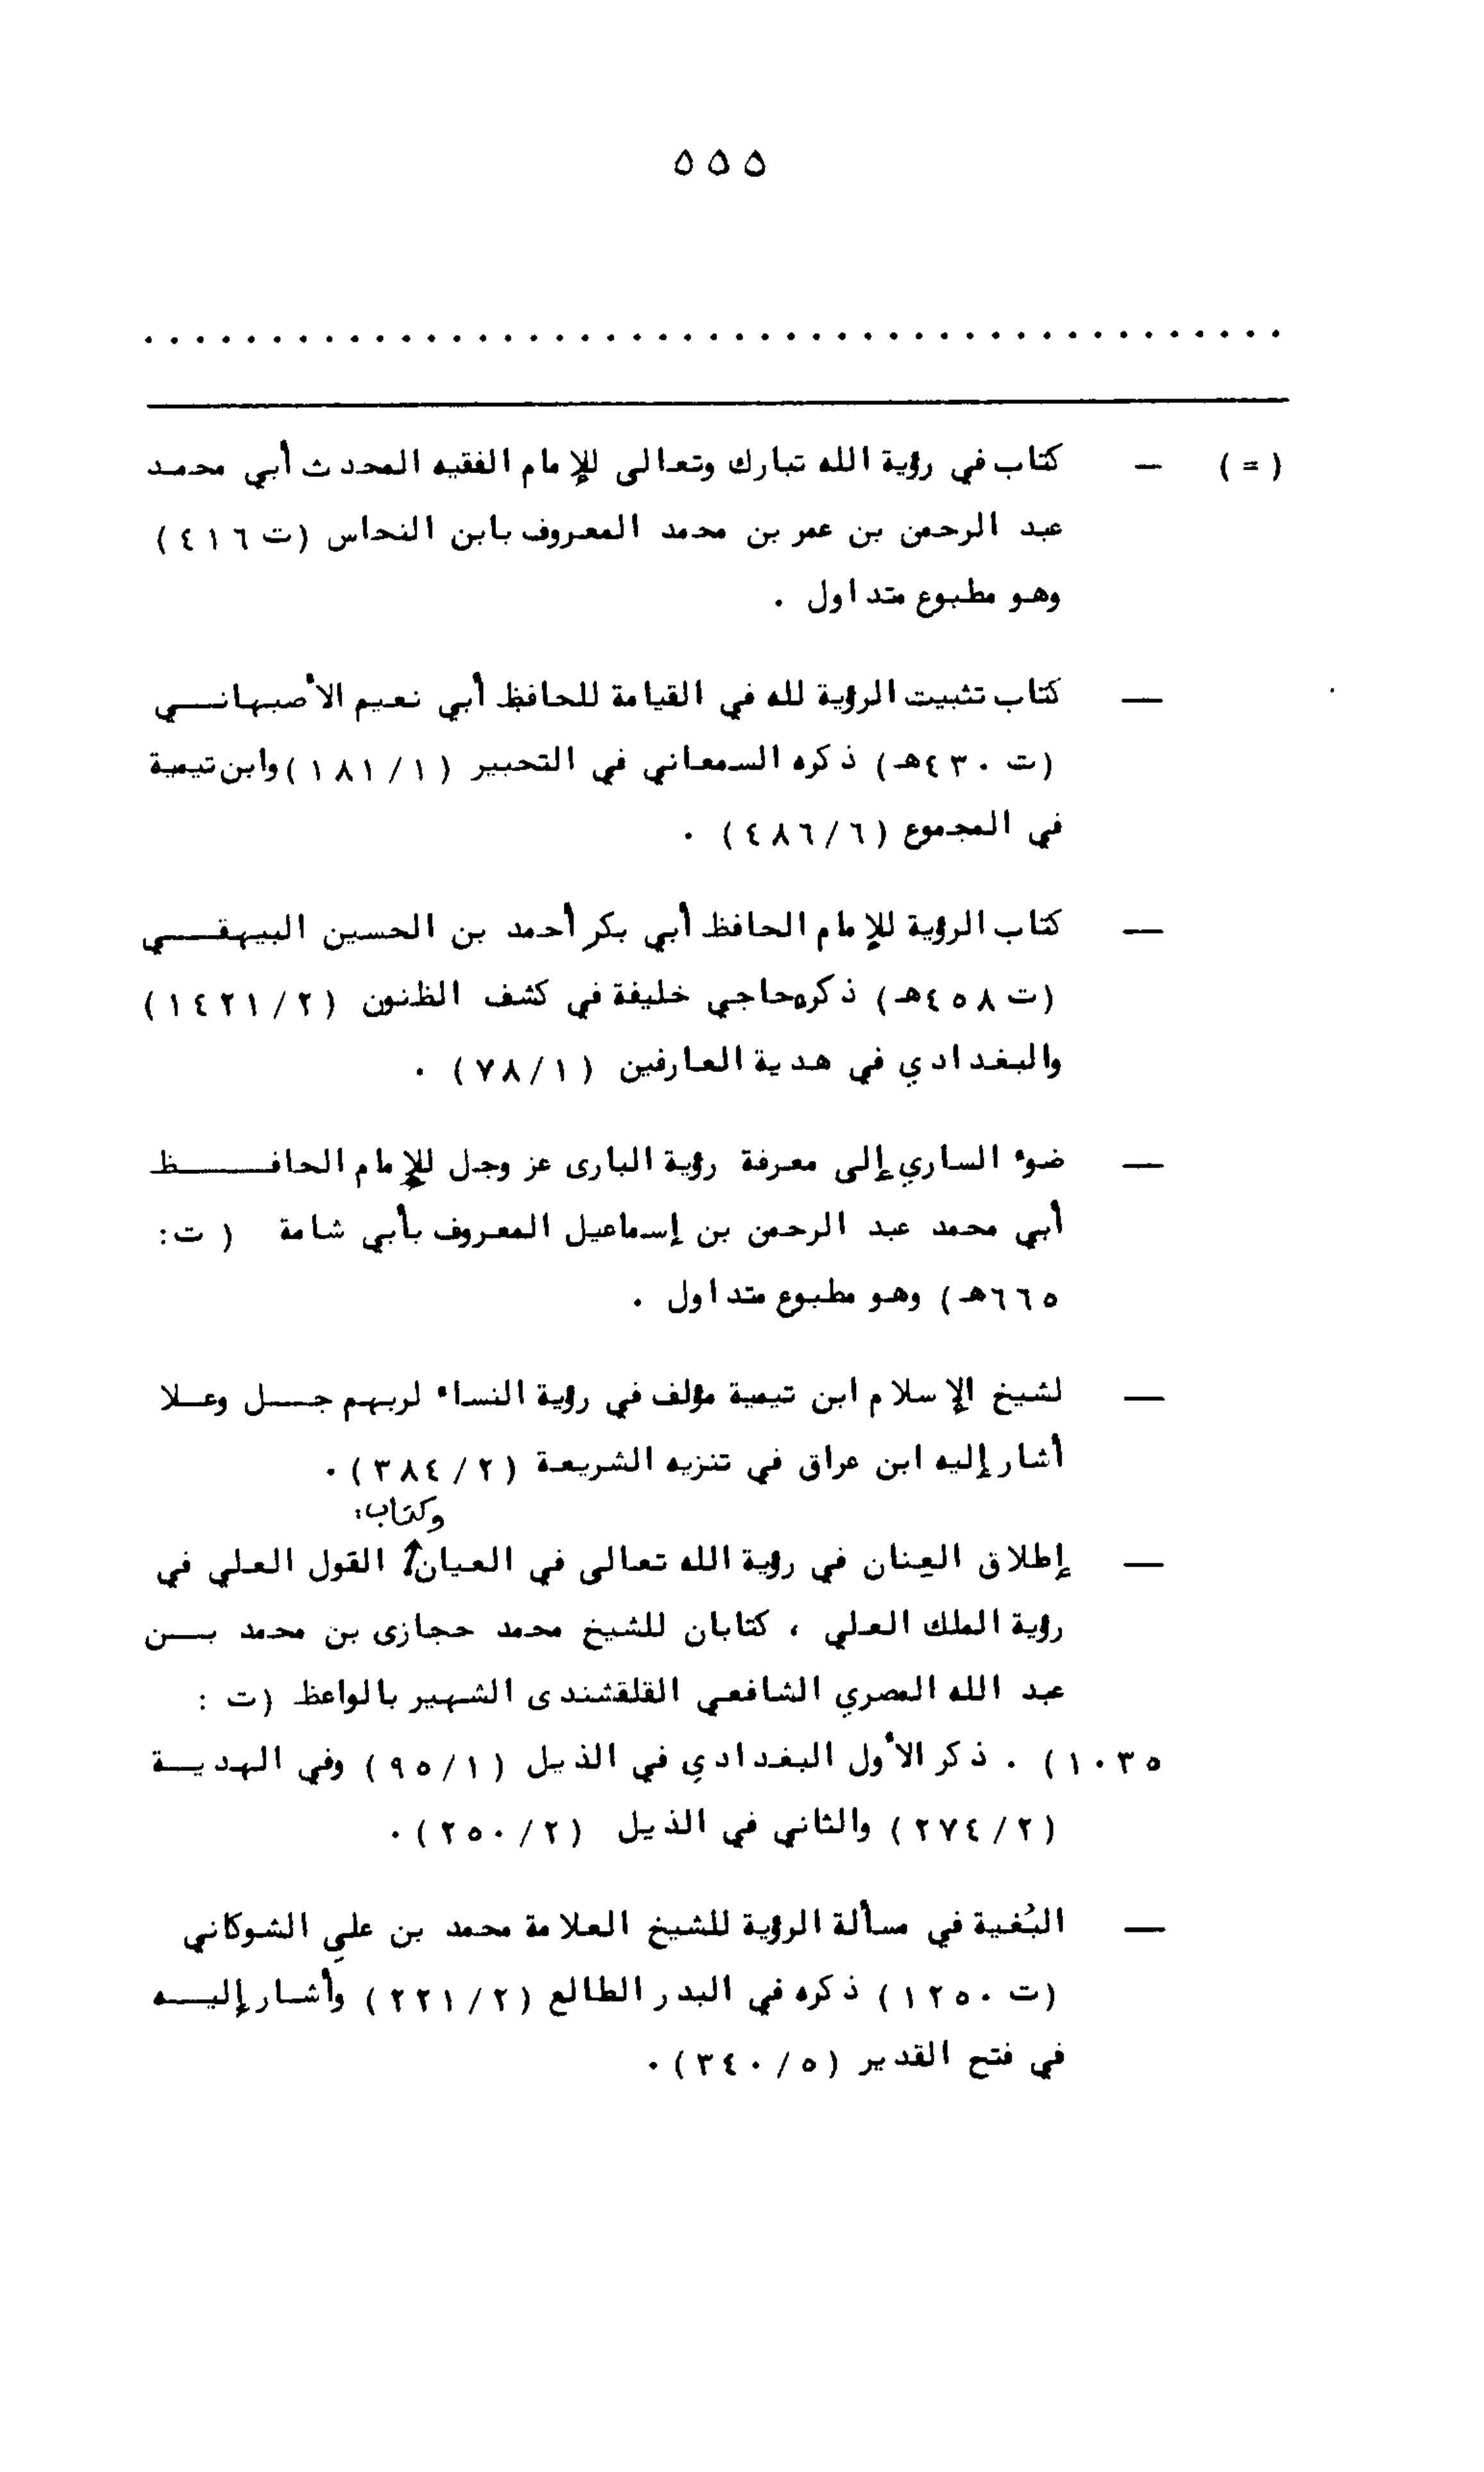 ٥٥٥
. . . . . . . . . . . . . . . . . . . . . . . . . . . . . . . . . . . . . . . . . . . . .
(=) — كتاب في رؤية الله تبارك وتعالى للإمام الفقيه المحدث أبي محمد
عبد الرحمن بن عمر بن محمد المعروف بابن النحاس (ت ٤١٦)
وهو مطبوع متداول .
— كتاب تثبيت الرؤية لله في القيامة للحافظ أبي نعيم الأصبهاني
(ت ٤٣٠هـ) ذكره السمعاني في التحبير (١/ ١٨١) وابن تيمية
في المجموع (٦/ ٤٨٦) .
— كتاب الرؤية للإمام الحافظ أبي بكر أحمد بن الحسين البيهقي
(ت ٤٥٨هـ) ذكره حاجي خليفة في كشف الظنون (٢/ ١٤٢١)
والبغدادي في هدية العارفين (١/ ٧٨) .
— ضوء الساري إلى معرفة رؤية البارى عز وجل للإمام الحافظ
أبي محمد عبد الرحمن بن إسماعيل المعروف بأبي شامة (ت:
٦٦٥هـ) وهو مطبوع متداول .
— لشيخ الإسلام ابن تيمية مؤلف في رؤية النساء لربهم جل وعلا
أشار إليه ابن عراق في تنزيه الشريعة (٢/ ٣٨٤).
وكتاب:
— إطلاق العِنان في رؤية الله تعالى في العيان القول العلي في
رؤية الملك العلي ، كتابان للشيخ محمد حجازى بن محمد بن
عبد الله المصري الشافعي القلقشندى الشهير بالواعظ (ت :
١٠٣٥) . ذكر الأول البغدادي في الذيل (١/ ٩٥) وفي الهدية
(٢/ ٢٧٤) والثاني في الذيل (٢/ ٢٥٠).
— البُغية في مسألة الرؤية للشيخ العلامة محمد بن علي الشوكاني
(ت ١٢٥٠) ذكره في البدر الطالع (٢/ ٢٢١) وأشار إليه
في فتح القدير (٥/ ٣٤٠).